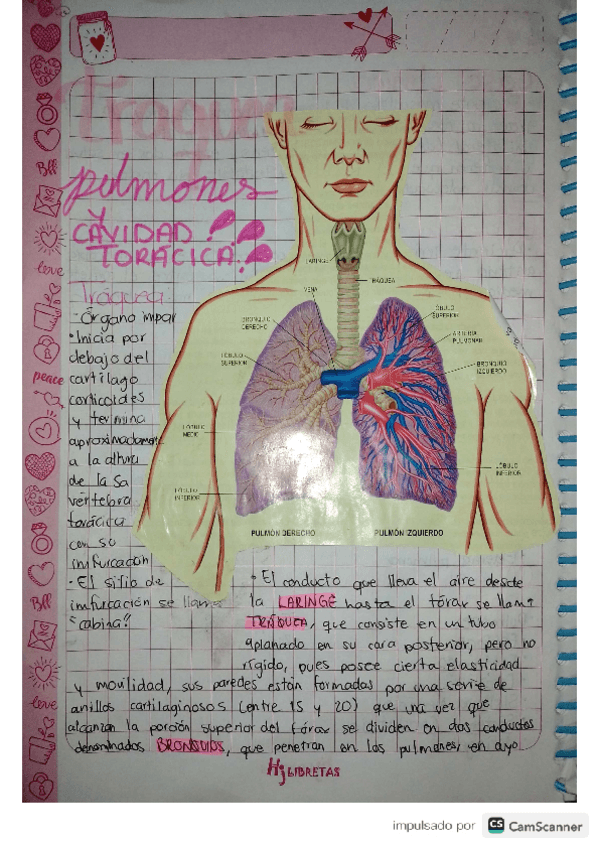 Tráquea
pulmones
y
CAVIDAD
TORÁCICA
Tráquea
·Órgano impar
·Inicia por
debajo del
cartílago
corticoides
y termina
aproximadamente
a la altura
de la 5a
vértebra
torácica
con su
imfurcación
·El sitio de
imfurcación se llama
"cabina"
LARINGE
TRÁQUEA
VENA
BRONQUIO
DERECHO
LÓBULO
SUPERIOR
LÓBULO
MEDIO
LÓBULO
INFERIOR
LÓBULO
SUPERIOR
ARTERIA
PULMONAR
BRONQUIO
IZQUIERDO
LÓBULO
INFERIOR
PULMÓN DERECHO
PULMÓN IZQUIERDO
·El conducto que lleva el aire desde
la LARINGE hasta el tórax se llama
TRÁQUEA, que consiste en un tubo
aplanado en su cara posterior, pero no
rígido, pues posee cierta elasticidad
y movilidad, sus paredes están formadas por una serie de
anillos cartilaginosos (entre 15 y 20) que una vez que
alcanzan la porción superior del tórax se dividen en dos conductos
denominados BRONQUIOS, que penetran en los pulmones, en cuyo
Bff
love
peace
Bff
love
Hj LIBRETAS
impulsado por CS CamScanner